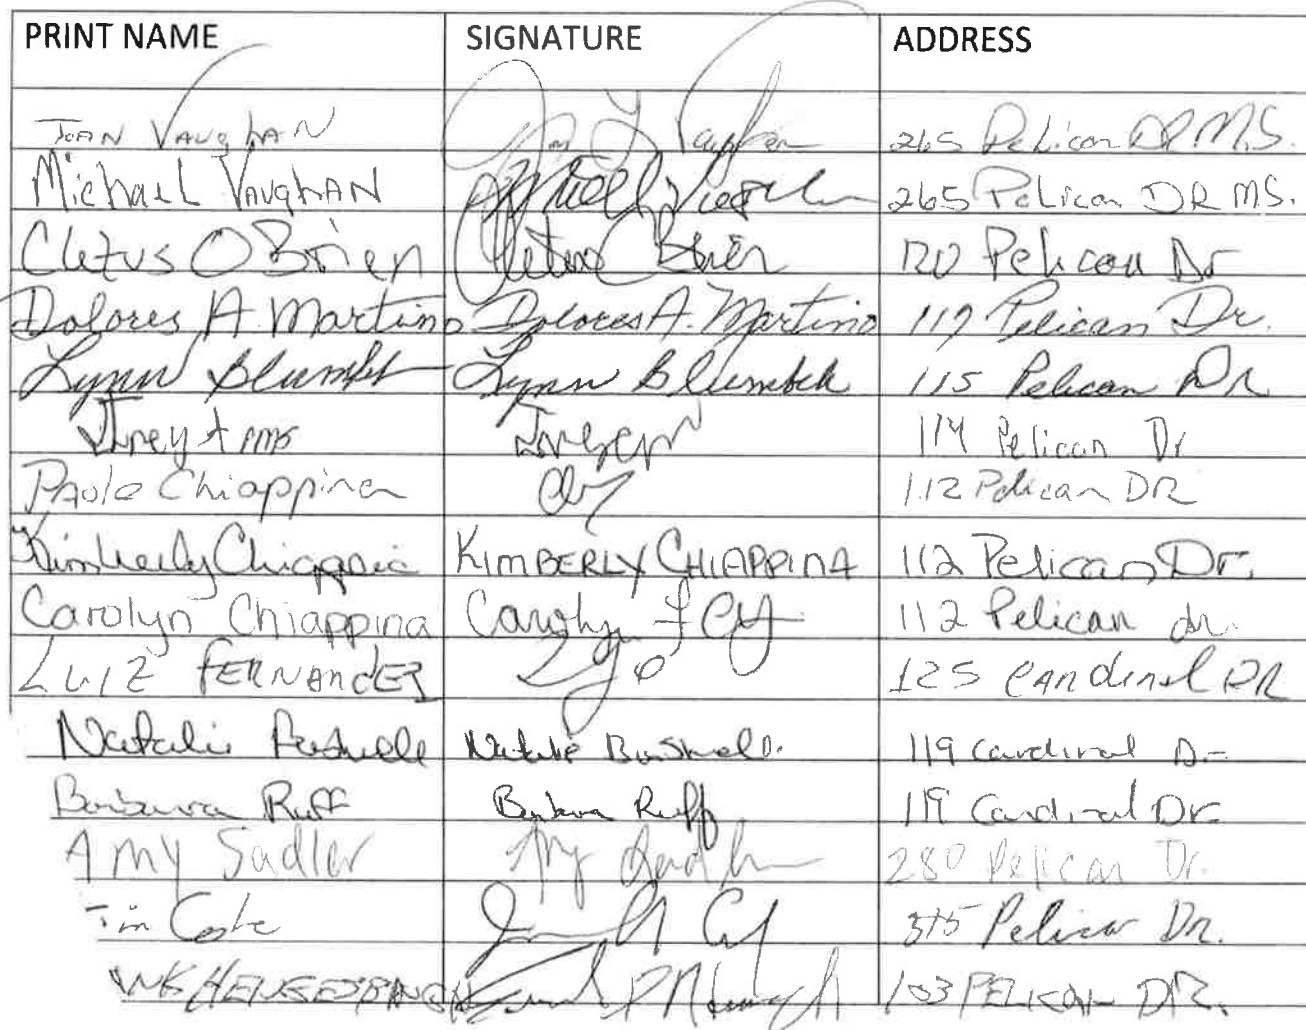 PRINT NAME SIGNATURE ADDRESS
JOAN VAUGHAN 265 Pelican DR M.S.
Michael VAUGHAN 265 Pelican DR M.S.
Cletus O'Brien Cletus O'Brien 120 Pelican Dr
Dolores A. Martino Dolores A. Martino 117 Pelican Dr.
Lynn Lynn 115 Pelican DR
114 Pelican Dr
Chiappina 112 Pelican DR
Kimberly Chiappina KIMBERLY CHIAPPINA 112 Pelican Dr.
Carolyn Chiappina Carolyn 112 Pelican dr.
LUIZ FERNANDEZ 125 Cardinal DR
Natalie Natalie 119 Cardinal Dr
Barbara Ruff Barbara Ruff 119 Cardinal Dr.
Amy Sadler Amy 280 Pelican Dr.
Tim Pelican Dr.
103 PELICAN DR.